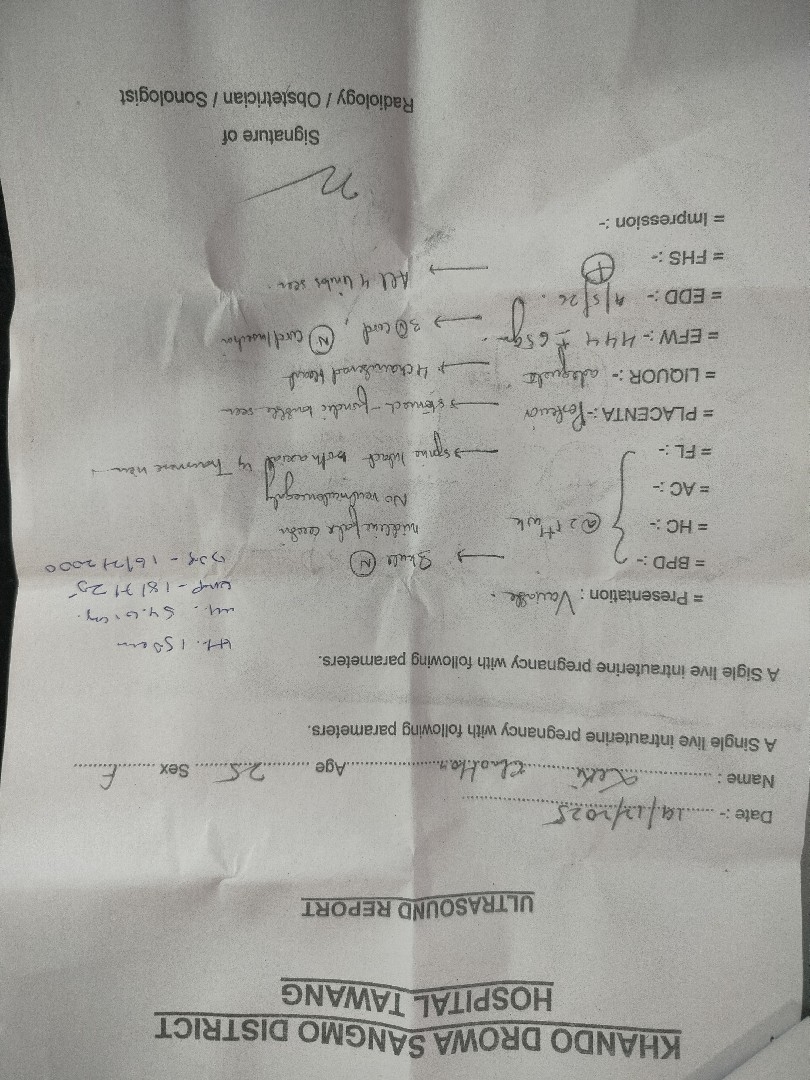 KHANDO DROWA SANGMO DISTRICT
HOSPITAL TAWANG
ULTRASOUND REPORT
Date :- 19/12/2025
Name : Age 25 Sex F
A Single live intrauterine pregnancy with following parameters.
A Sigle live intrauterine pregnancy with following parameters.
Ht. 150 cm
wt. 54.6 kg.
LMP - 18/7/25
= Presentation : Variable.
= BPD :- → Skull (N)
midline falx
= HC :- @ 21+ wk
No ventriculomegaly
= AC :-
= FL :- → spine intact both axial & Transverse view
= PLACENTA :- Posterior → stomach - fundic bubble seen
= LIQUOR :- adequate → 4 chambered heart
= EFW :- 444 ± 65gm. → cord, (N) cord insertion
= EDD :- /5/26.
= FHS :- (+) → All 4 limbs seen.
= Impression :-
Signature of
Radiology / Obstetrician / Sonologist